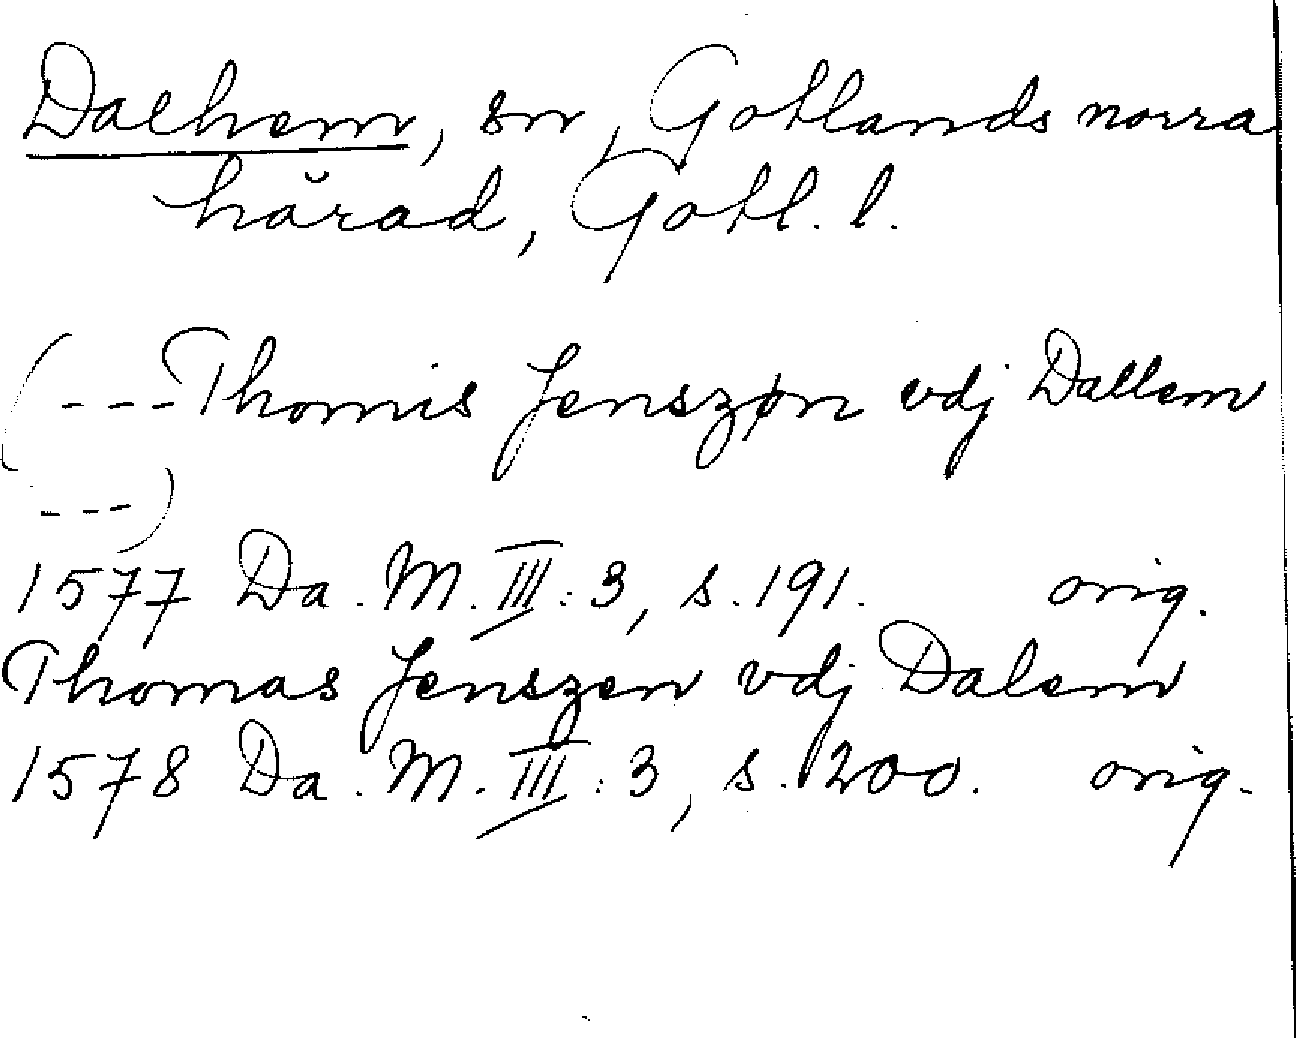 Dalhem, sn, Gotlands norra
härad, Gotl. l.
(---Thomis Jenszøn vdj Dallem
---)
1577 Da. M. III: 3, s. 191. orig.
Thomas Jenszen vdj Dalem
1578 Da. M. III: 3, s. 200. orig.